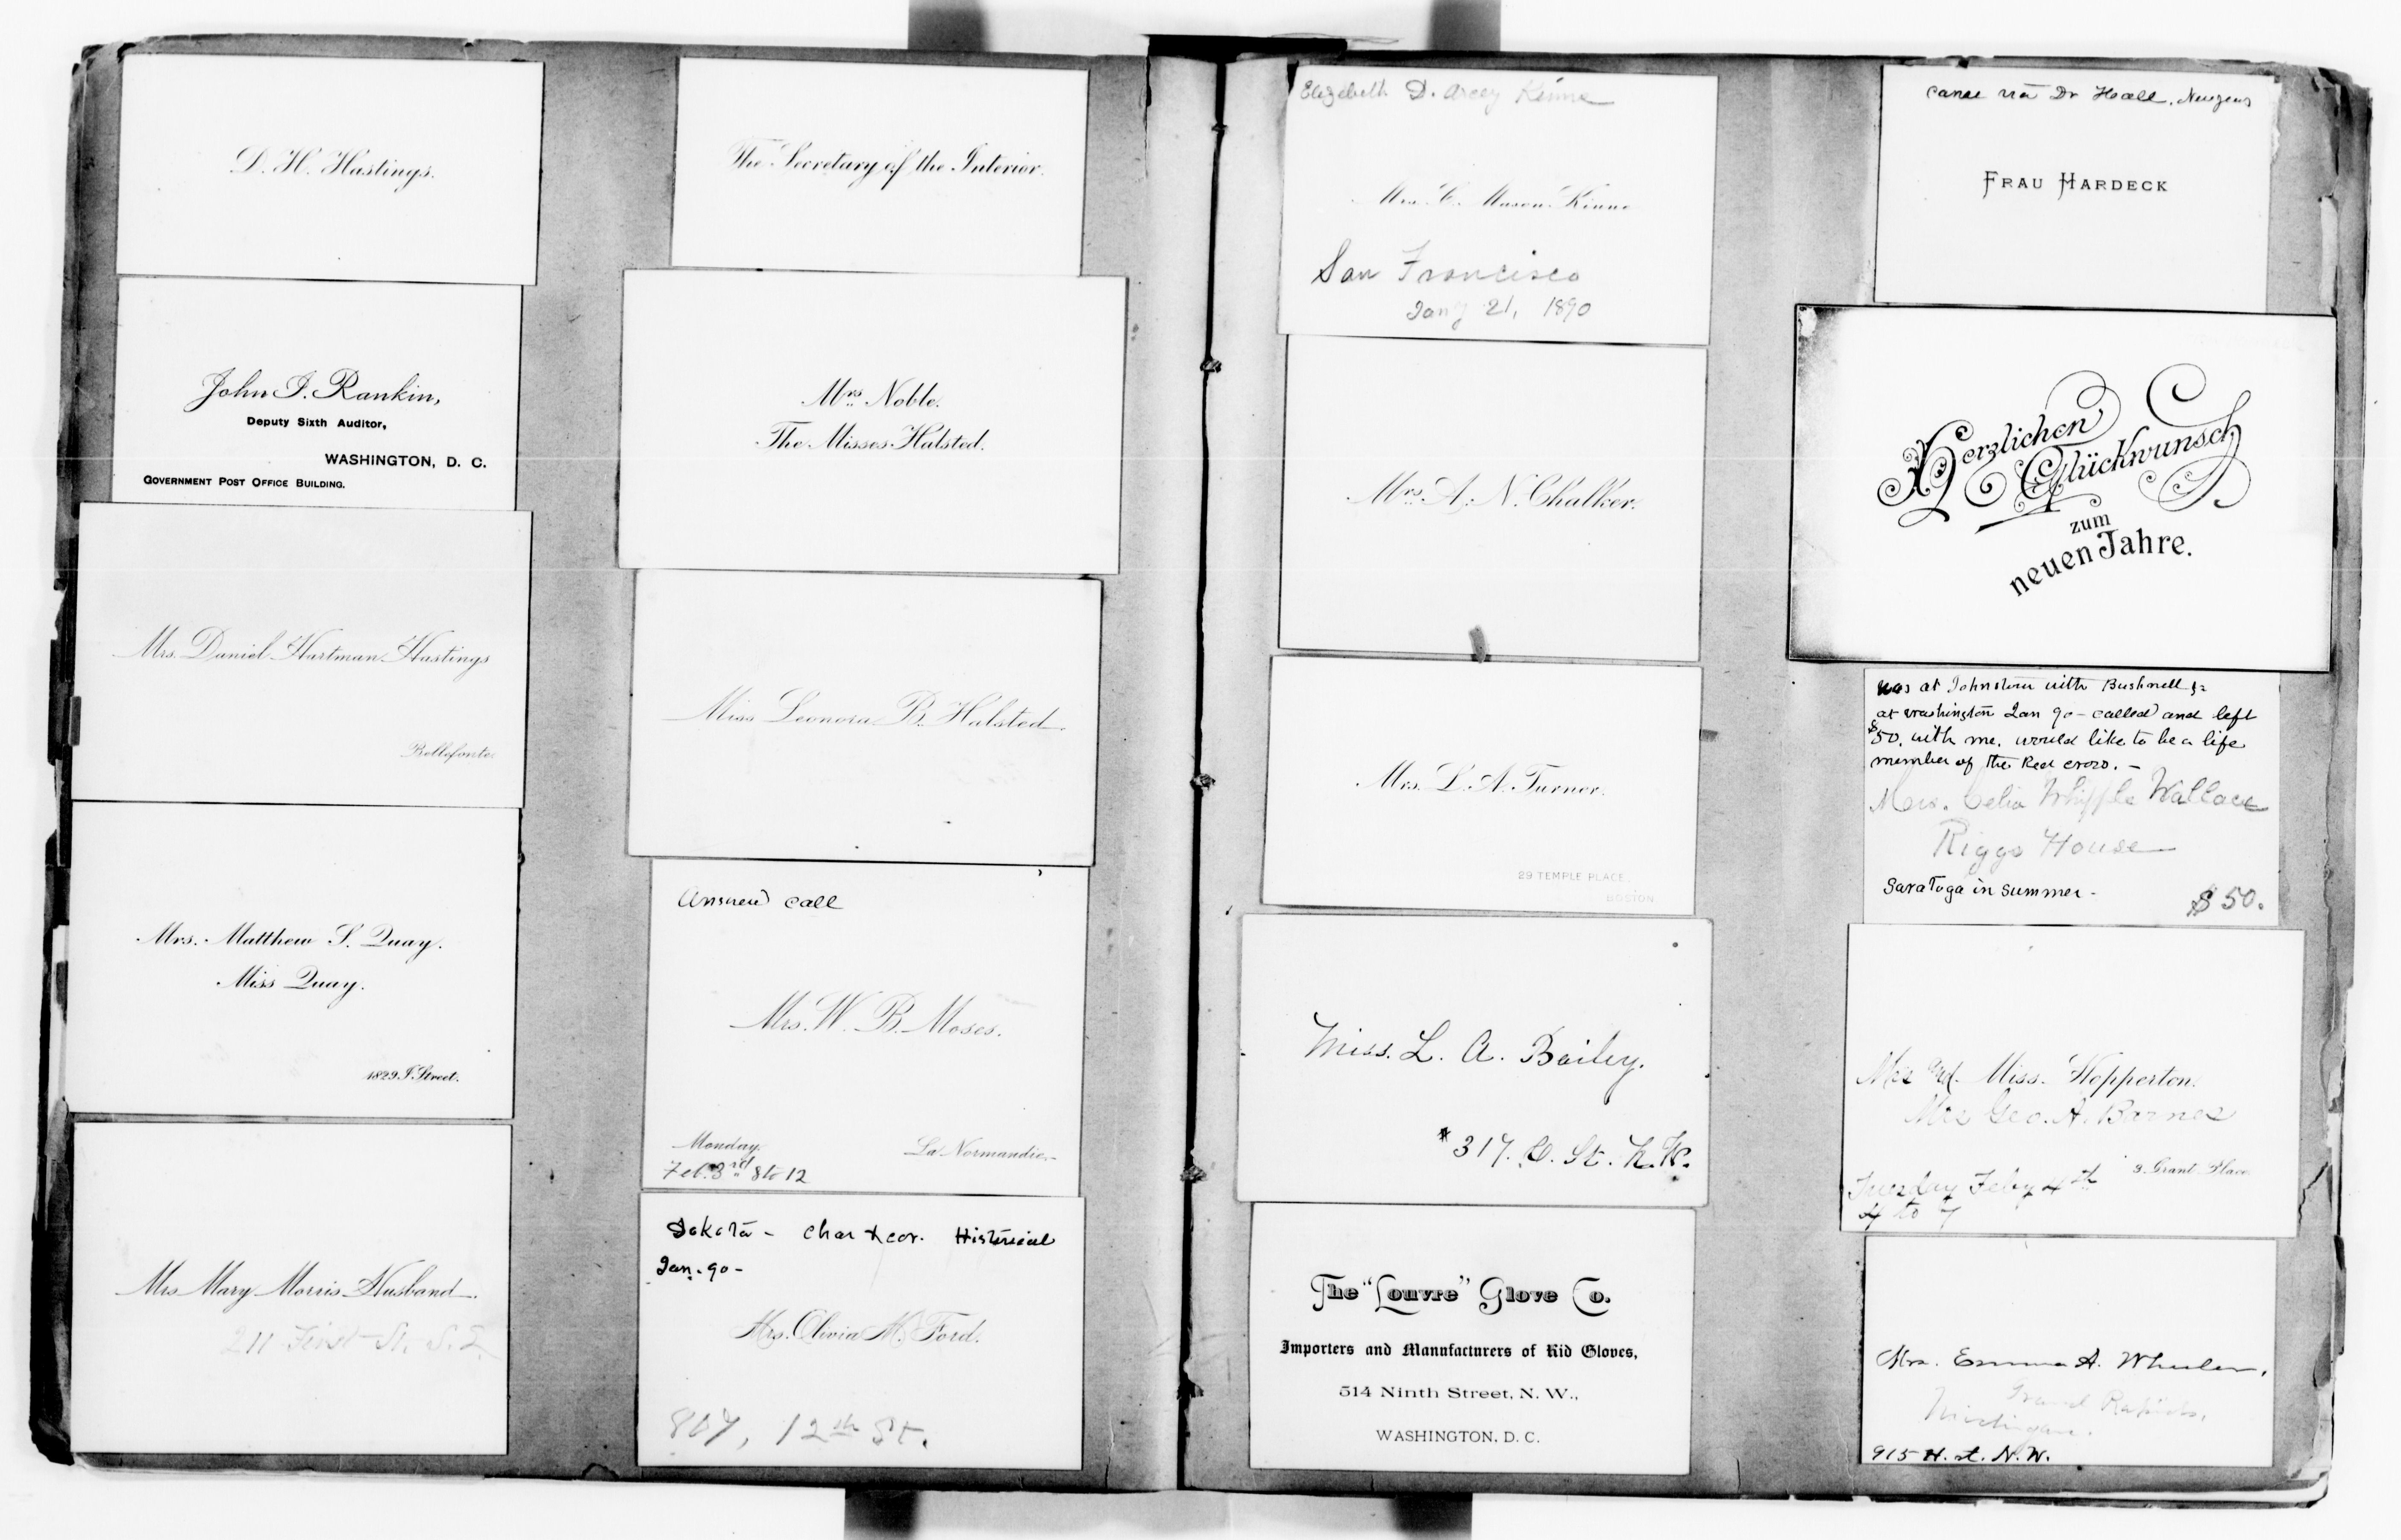 D. H. Hastings.
John I. Rankin,
Deputy Sixth Auditor,
WASHINGTON, D. C.
GOVERNMENT POST OFFICE BUILDING.
Mrs. Daniel Hartman Hastings
Bellefonte.
Mrs. Matthew S. Quay.
Miss Quay.
1829 I. Street.
Mrs Mary Morris Husband.
211 First St. S.E.
The Secretary of the Interior.
Mrs Noble.
The Misses Halsted.
Miss Leonora B. Halsted.
Answered call
Mrs. W. B. Moses.
Monday.
La Normandie.
Feb. 3rd 8 to 12
Dakota - Historical
Jan. 90 -
Mrs. Olivia M. Ford.
807, 12th St.
Elizabeth D. Arcey Kinne
Mrs. C. Mason Kinne
San Francisco
Jany 21, 1890
Mrs. A. N. Chalker.
Mrs. L. A. Turner.
29 TEMPLE PLACE.
BOSTON
Miss. L. A. Bailey.
317. C. St. N. W.
The "Louvre" Glove Co.
Importers and Manufacturers of Kid Gloves,
514 Ninth Street, N. W.,
WASHINGTON, D. C.
via Dr Hall.
FRAU HARDECK
Herzlichen
Glückwunsch
zum
neuen Jahre.
was at Johnstown with Bushnell
at Washington Jan 90 - called and left
$50. with me. would like to be a life
member of the Red Cross. -
Mrs. Celia Whipple Wallace
Riggs House
Saratoga in summer -
$50.
Mrs and Miss. Hopperton.
Mrs Geo. A. Barnes
3. Grant Place
Tuesday Feby 4th
4 to 7
Mrs. Emma A. Wheeler,
Grand Rapids,
Michigan.
915 H. st. N. W.